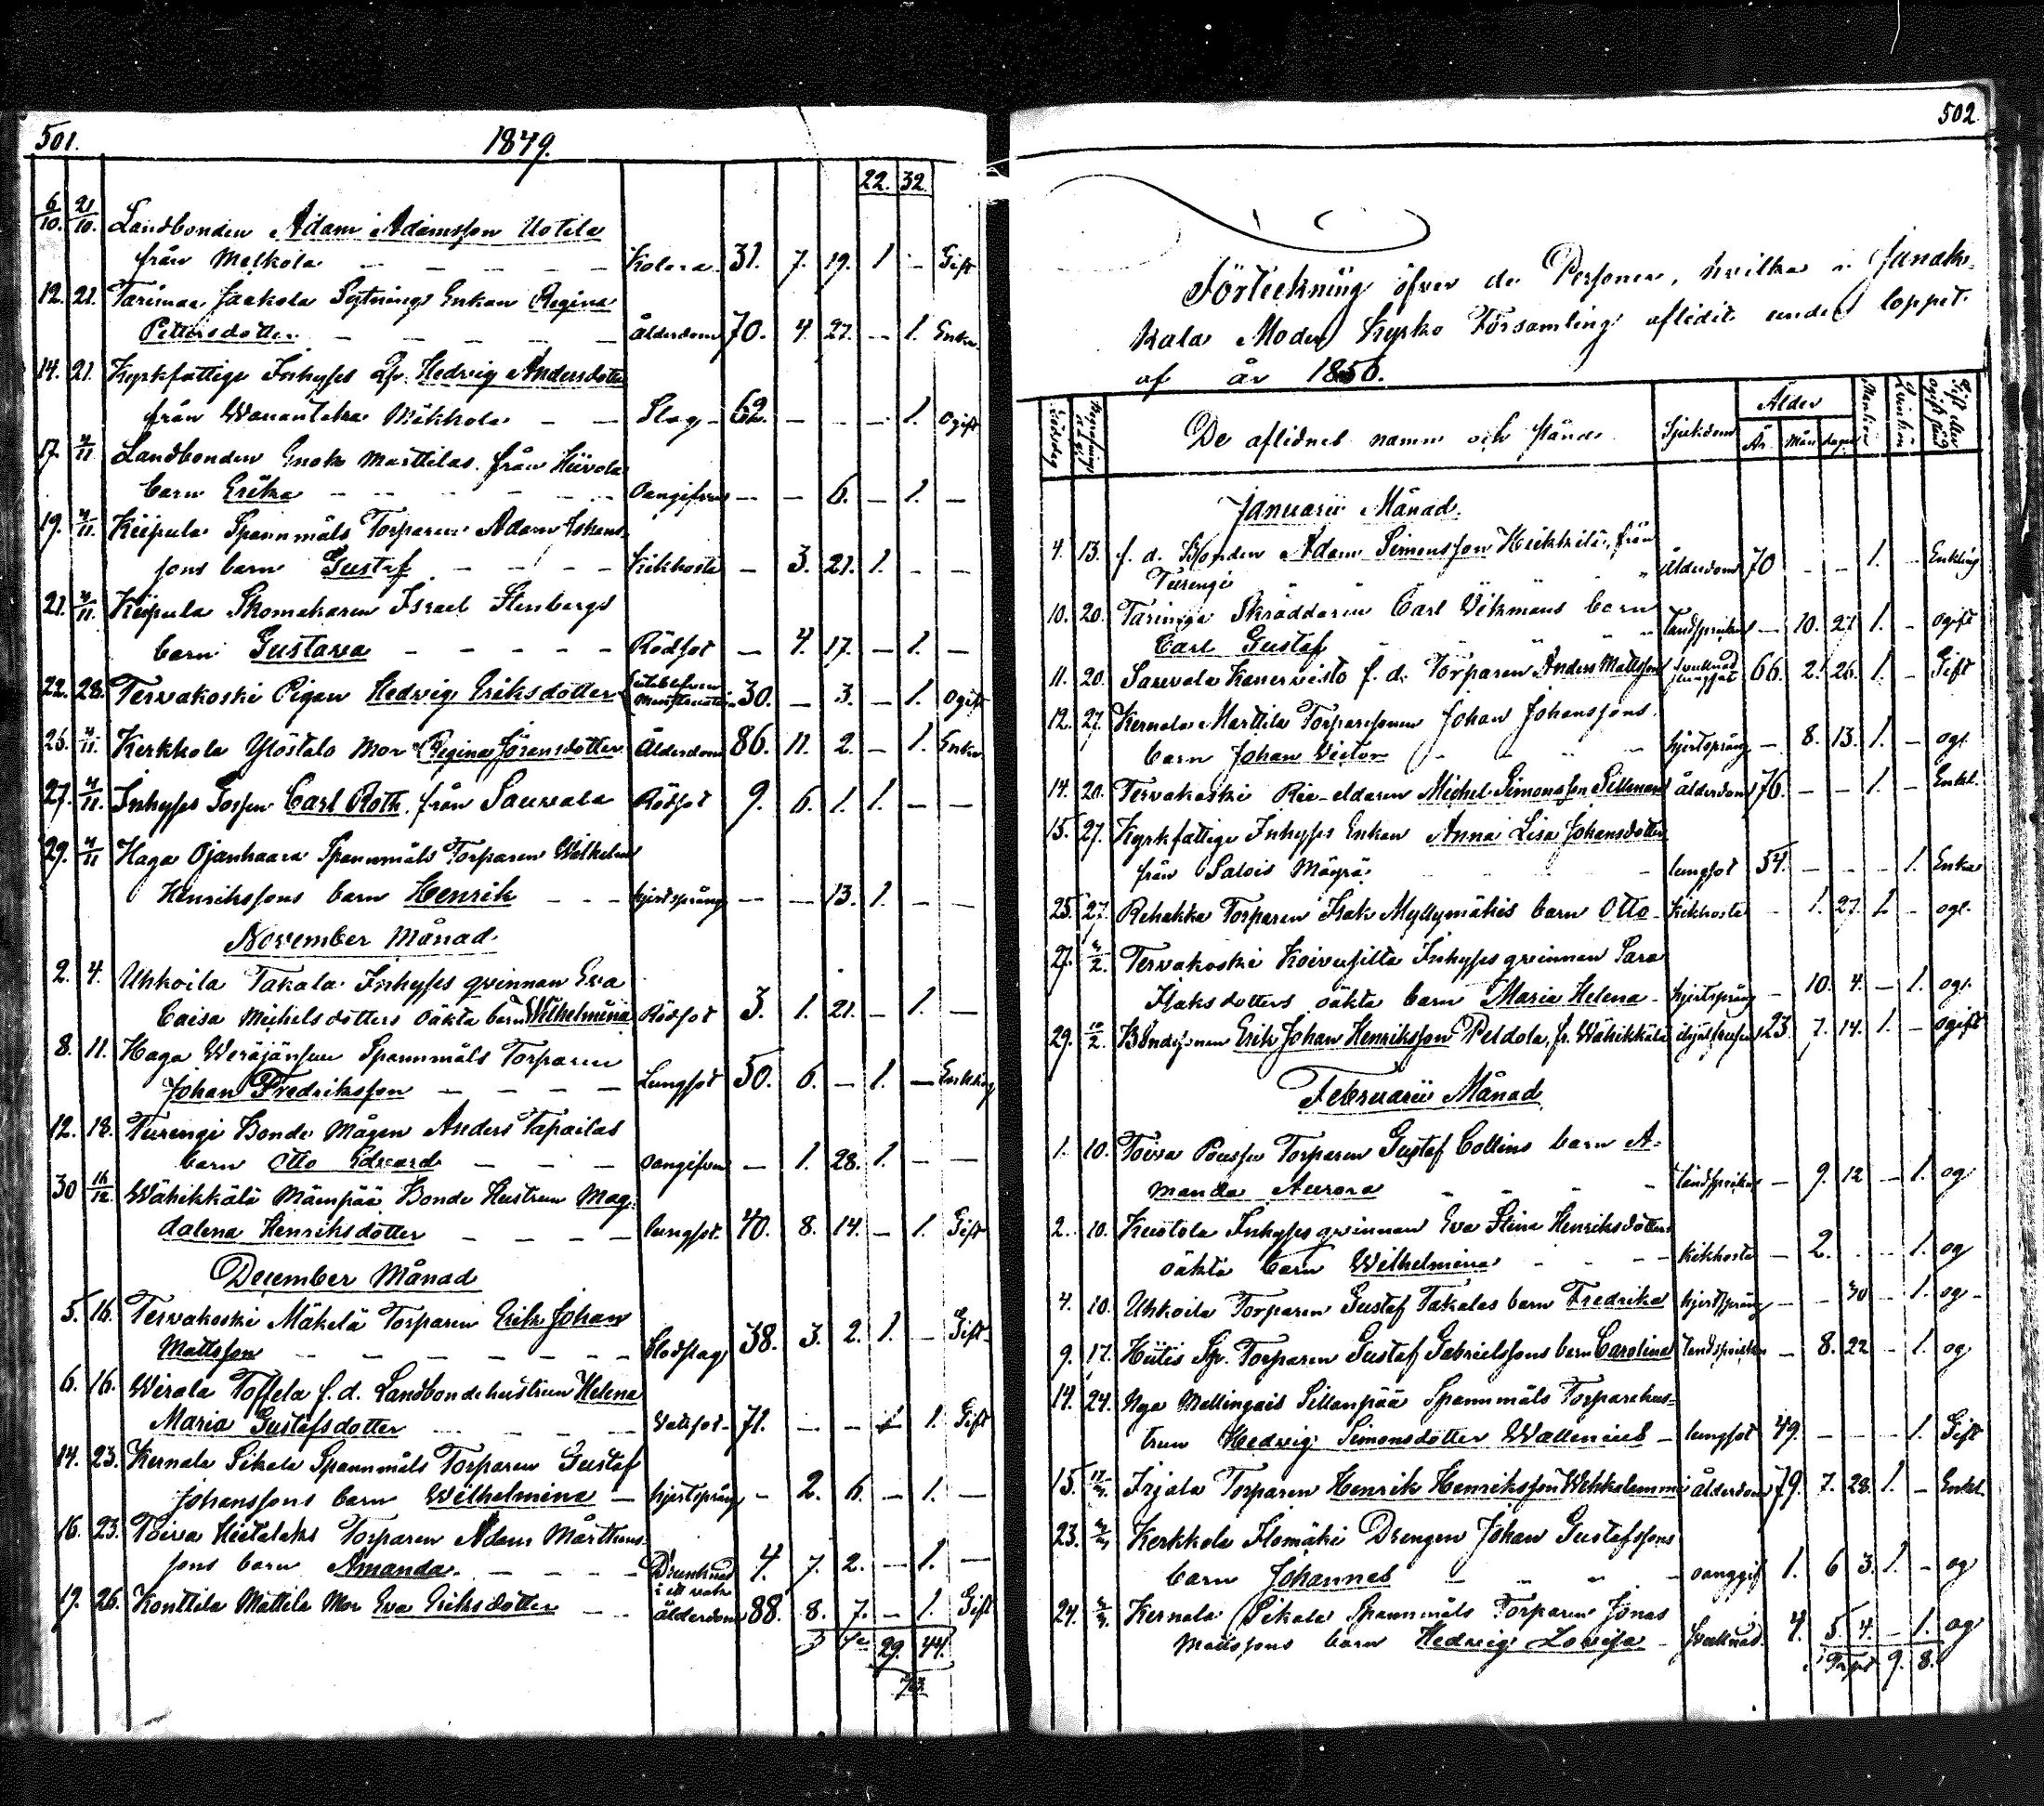 501.
1849.
22. 32.
6/10. 21/10. Landbonden Adam Adamsson Uotila
från Melkola — — — — — Kolera 31. 7. 19. 1 — Gift
12. 21. Tarinaa Jaakola Sytnings Enkan Regina
Pettersdotter — — — — — Ålderdom 70. 4. 27. — 1. Enka
14. 21. Kyrkfattige Inhyses Qv. Hedvig Andersdotter
från Wanantaka Mäkkola — — Slag 62. — — — 1. Ogift
17. 4/11 Landbonden Enok Marttilas från Hiivola
barn Erika — — — — — Oangifven — — 6. — 1. —
19. 4/11. Kiipula Spannmåls Torparen Adam Johans
sons barn Gustaf — — — — Kikhosta — 3. 21. 1. — —
21. 4/11. Kiipula Skomakaren Israel Stenbergs
barn Gustava — — — — — Rödsot — 4. 17. — 1. —
22. 28. Tervakoski Pigan Hedvig Eriksdotter Menstruation 30. — 3. — 1. Ogift
26. 4/11. Kerkkola Ylöstalo Mor Regina Göransdotter Ålderdom 86. 11. 2. — 1. Enka
27. 4/11. Inhyses Gossen Carl Roth, från Sauvala Rödsot 9. 6. 1. 1. — —
29. 4/11 Haga Ojanhaara Spannmåls Torparen Wilhelm
Henrikssons barn Henrik — — — hjertsprång — — 13. 1. — —
November Månad.
2. 4. Uhkoila Takala Inhyses qvinnan Eva
Caisa Michelsdotters oäkta barn Wilhelmina Rödsot 3. 1. 21. — 1. —
8. 11. Haga Weräjänsuu Spannmåls Torparen
Johan Fredriksson — — — — Lungsot 50. 6. — 1. — Enkling
12. 18. Turengi Bonde Mågen Anders Tapailas
barn Otto Edvard — — — oangifven — 1. 28. 1. — —
30 16/12. Wähikkälä Mämpää Bonde Hustrun Mag-
dalena Henriksdotter — — — — lungsot. 40. 8. 14. — 1. Gift
December Månad
5. 16. Tervakoski Mäkelä Torparen Erik Johan
Mattsson — — — — — — — blodslag 38. 3. 2. 1. — Gift
6. 16. Wirala Toffela f. d. Landbondehustrun Helena
Maria Gustafsdotter — — — — Vattsot 71. — — 1 1. Gift
14. 23. Kernala Sikala Spannmåls Torparen Gustaf
Johanssons barn Wilhelmina — hjertsprång — 2. 6. — 1. —
16. 23. Toiva Torparen Adam Mårtens
sons barn Amanda. — — — — Drunknad 4. 7. 2. — 1. —
19. 26. Konttila Mattila Mor Eva Eriksdotter — — ålderdom 88. 8. 7. — 1. Gift
29. 44.
73.
502
Förteckning öfver de Personer, hvilka i Janak-
kala Moder Kyrko Församling aflidit under loppet
af år 1850.
Dödsdag Begrafningsdag De aflidnes namn och stånd Sjukdom Ålder År. Mån. dagar Mankön Qvinkön Gift eller ogift stånd
Januarii Månad.
4. 13. f. d. Bonden Adam Simonsson Heikkilä, från
Turengi Ålderdom 70 — — 1. — Enkling
10. 20. Taringa Skräddaren Carl Wikmans barn
Carl Gustaf Tandsprickning — 10. 27 1. — Ogift
11. 20. Sauvala Kanervisto f. d. Torparen Anders Mattsson 66. 2. 26. 1. — Gift
12. 27. Kernala Marttila Torparesonen Johan Johanssons
barn Johan Victor hjertsprång — 8. 13. 1. — ogt.
14. 20. Tervakoski Rie-eldaren Michel Simonsson Sillman ålderdom 76. — — 1. — Enkl.
15. 27. Kyrkfattige Inhyses Enkan Anna Lisa Johansdotter
från Salois Mäyrä lungsot 54. — — — 1. Enka
25. 27. Rehakka Torparen Isak Myllymäkis barn Otto Kikhosta — 1. 27. 1. — ogt.
27. 3/2. Tervakoski Koivusilta Inhyses qvinnan Sara
Isaksdotters oäkta barn Maria Helena hjertsprång — 10. 4. — 1. ogt.
29. 10/2. Bondesonen Erik Johan Henriksson Peldola, fr. Wähikkälä 23. 7. 14. 1. — Ogift
Februarii Månad
1. 10. Toiva Torparen Gustaf Collins barn A-
manda Aurora tandsprickn. — 9. 12 — 1. og
2. 10. Kuotola Inhyses qvinnan Eva Stina Henriksdotters
oäkta barn Wilhelmina Kikhosta — 2. — — 1. og
4. 10. Uhkoila Torparen Gustaf Takalas barn Fredrika hjertsprång — — 30 — 1. og
9. 17. Hiitis Sp. Torparen Gustaf Gabrielssons barn Carolina tandsprickn — 8. 22 — 1. og
14. 24. Nya Mallingais Sillanpää Spannmåls Torparehus-
trun Hedvig Simonsdotter Wallenius — lungsot 49. — — — 1. Gift
15. Irjala Torparen Henrik Henriksson Wehkalammi ålderdom 79. 7. 28. 1. — Enkl.
23. Kerkkola Ilomäki Drengen Johan Gustafssons
barn Johannes oanggif 1. 6 3. 1. — og
24. Kernala Sikala Spannmåls Torparen Jonas
Mattssons barn Hedvig Lovisa Svullnad. 4. 5. 4. — 1. og
Trpt 9. 8.